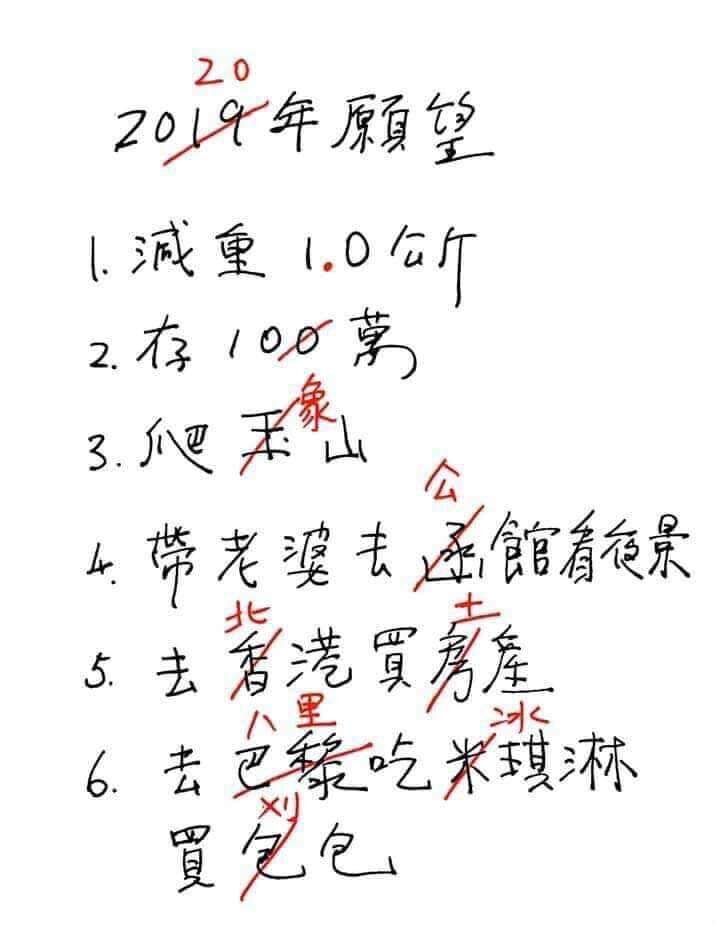 20
2019年願望
1. 減重 1.0公斤
2. 存 100萬
象
3. 爬玉山
公
4. 帶老婆去函館看夜景
北 土
5. 去香港買房產
八里 冰
6. 去巴黎吃米琪淋
刈
買包包